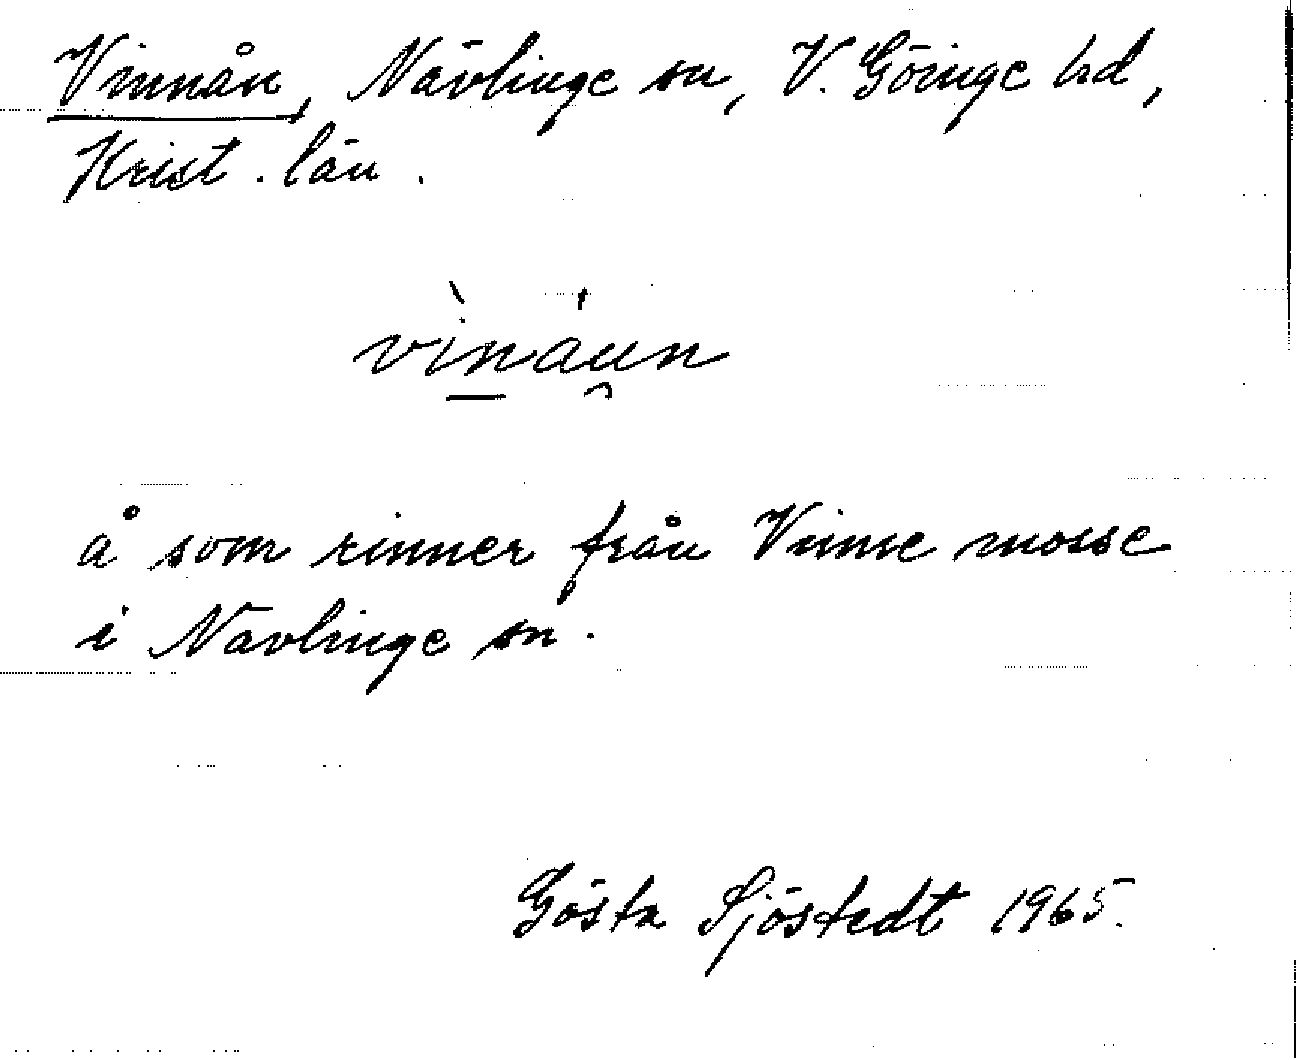 Vinnån, Nävlinge sn, V. Göinge hd,
Krist. län.
vìnáun
å som rinner från Vinne mosse
i Nävlinge sn.
Gösta Sjöstedt 1965.